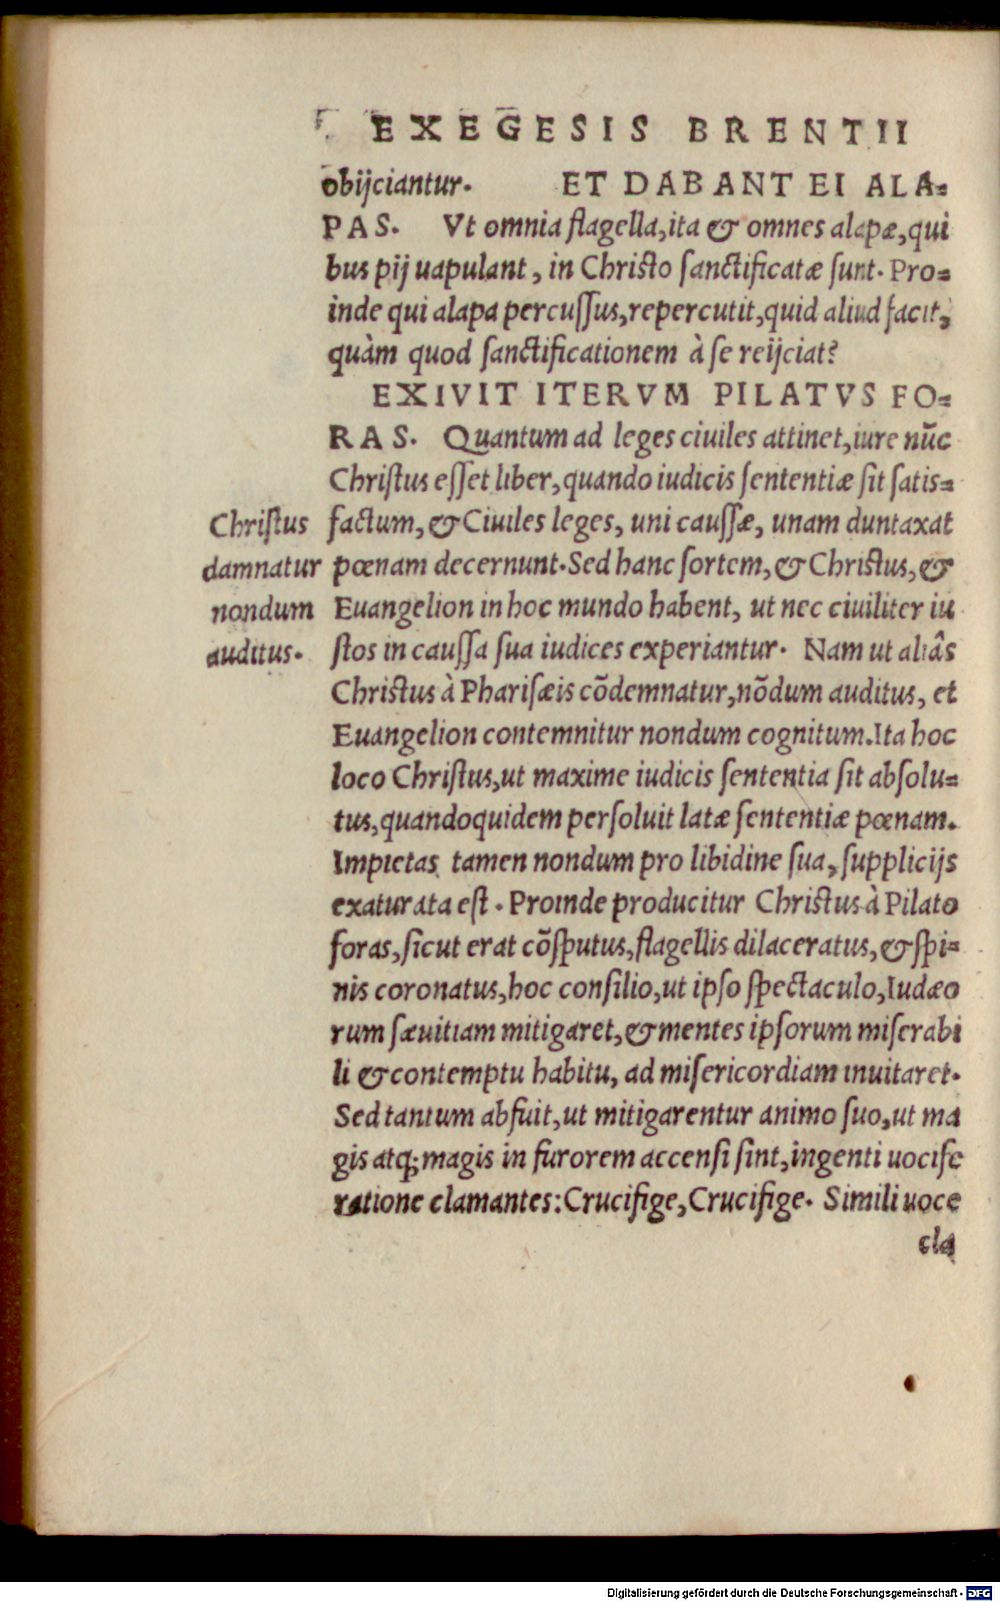 EXEGESIS BRENTII
obijciantur. ET DABANT EI ALA=
PAS. Vt omnia flagella,ita & omnes alapæ,qui
bus pij uapulant, in Christo sanctificatæ sunt. Pro=
inde qui alapa percussus,repercutit,quid aliud facit,
quàm quod sanctificationem à se reijciat?
EXIVIT ITERVM PILATVS FO=
RAS. Quantum ad leges ciuiles attinet,iure nūc
Christus esset liber,quando iudicis sententiæ sit satis=
factum,& Ciuiles leges, uni caussæ, unam duntaxat
pœnam decernunt.Sed hanc sortem,& Christus,&
Euangelion in hoc mundo habent, ut nec ciuiliter iu
stos in caussa sua iudices experiantur. Nam ut aliâs
Christus à Pharisæis cōdemnatur,nōdum auditus, et
Euangelion contemnitur nondum cognitum.Ita hoc
loco Christus,ut maxime iudicis sententia sit absolu=
tus,quandoquidem persoluit latæ sententiæ pœnam.
Impietas tamen nondum pro libidine sua,supplicijs
exaturata est. Proinde producitur Christus à Pilato
foras,sicut erat cōsputus,flagellis dilaceratus,& spi=
nis coronatus,hoc consilio,ut ipso spectaculo,Iudæo
rum sæuitiam mitigaret,& mentes ipsorum miserabi
li & contemptu habitu, ad misericordiam inuitaret.
Sed tantum abfuit,ut mitigarentur animo suo,ut ma
gis atq;magis in furorem accensi sint,ingenti uocife
ratione clamantes:Crucifige,Crucifige. Simili uoce
cla
Christus
damnatur
nondum
auditus.
Digitalisierung gefördert durch die Deutsche Forschungsgemeinschaft - DFG